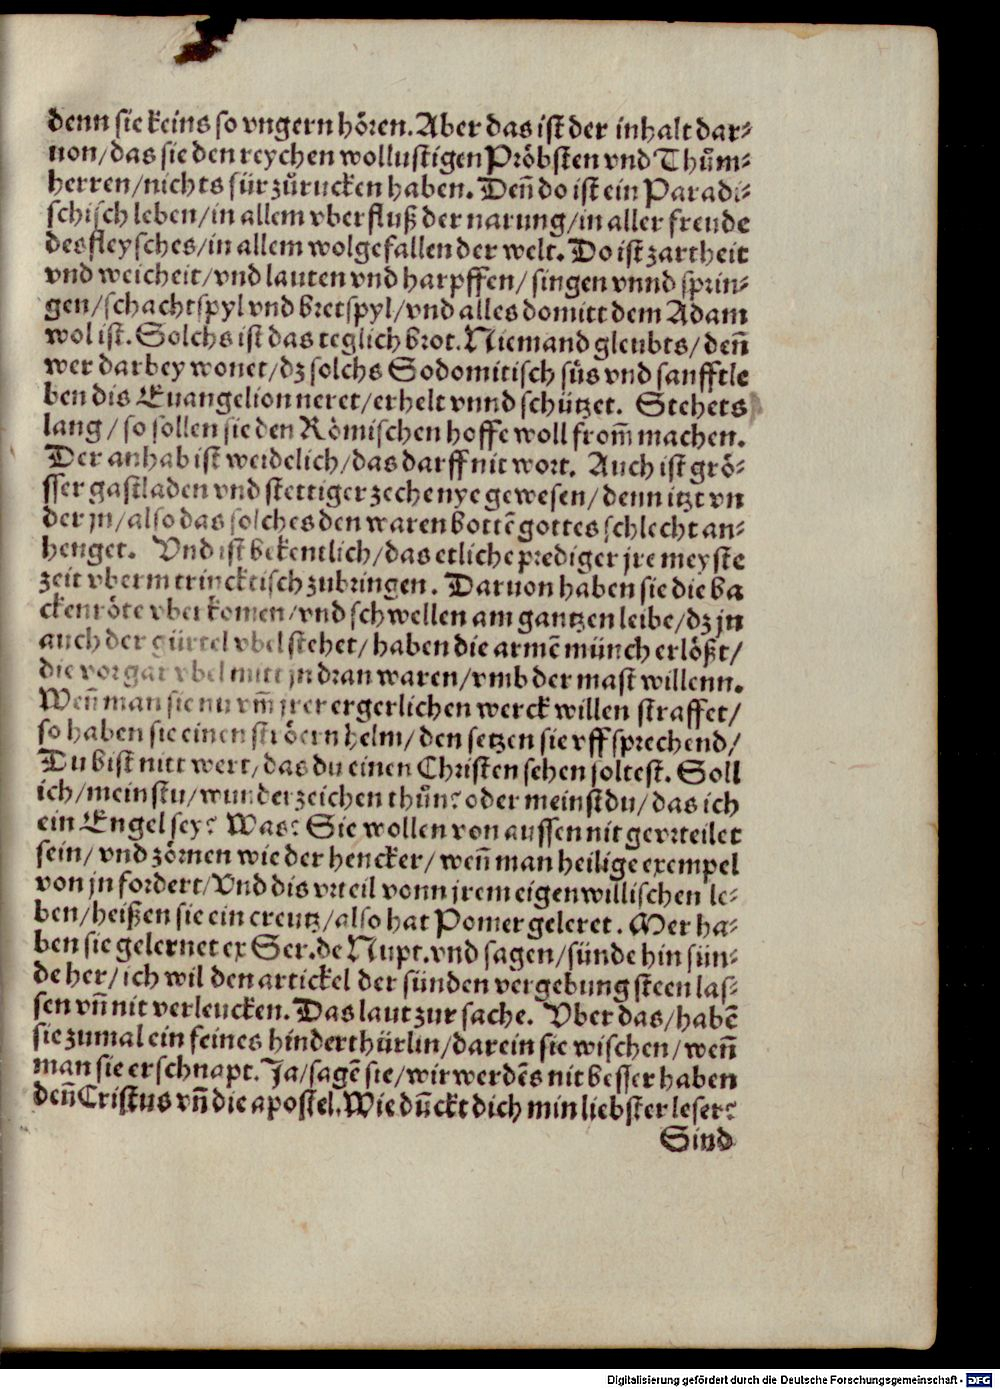 denn sie keins so vngern hören. Aber das ist der inhalt dar-
uon/ das sie den reychen wollustigen Pröbsten vnd Thům-
herren/ nichts für zůrucken haben. Deñ do ist ein Paradi-
schisch leben/ in allem vberfluß der narung/ in aller freude
des fleysches/ in allem wolgefallen der welt. Do ist zartheit
vnd weicheit/ vnd lauten vnd harpffen/ singen vnnd sprin-
gen/ schachtspyl vnd bretspyl/ vnd alles domitt dem Adam
wol ist. Solchs ist das teglich brot. Niemand gleubts/ deñ
wer darbey wonet/ dz solchs Sodomitisch süs vnd sanfftle
ben dis Euangelion neret/ erhelt vnnd schützet. Stehets
lang/ so sollen sie den Römischen hoffe woll from̃ machen.
Der anhab ist weidelich/ das darff nit wort. Auch ist grö-
sser gastladen vnd stettiger zeche nye gewesen/ denn itzt vn
der jn/ also das solches den waren bottē gottes schlecht an-
henget. Vnd ist bekentlich/ das etliche prediger jre meyste
zeit vberm trincktisch zubringen. Daruon haben sie die ba
ckenröte vberkomen/ vnd schwellen am gantzen leibe/ dz jn
auch der gürtel vbel stehet/ haben die armē münch erlößt/
die vor gar vbel mitt jn dran waren/ vmb der mast willenn.
Weñ man sie nu vm̃ jrer ergerlichen werck willen straffet/
so haben sie einen ströern helm/ den setzen sie vff sprechend/
Du bist nitt wert/ das du einen Christen sehen soltest. Soll
ich/ meinstu/ wunderzeichen thůn? oder meinstdu/ das ich
ein Engel sey? Was? Sie wollen von aussen nit gevrteilet
sein/ vnd zörnen wie der hencker/ weñ man heilige exempel
von jn fordert/ Vnd dis vrteil vonn jrem eigenwillischen le-
ben/ heißen sie ein creutz/ also hat Pomer geleret. Mer ha-
ben sie gelernet ex Ser. de Nupt. vnd sagen/ sünde hin sün-
de her/ ich wil den artickel der sünden vergebung steen las-
sen vñ nit verleucken. Das laut zur sache. Vber das/ habē
sie zumal ein feines hinderthürlin/ darein sie wischen/ weñ
man sie erschnapt. Ja/ sagē sie/ wir werdēs nit besser haben
deñ Cristus vñ die apostel. Wie dũckt dich min liebster leser?
Sind
Digitalisierung gefördert durch die Deutsche Forschungsgemeinschaft - DFG